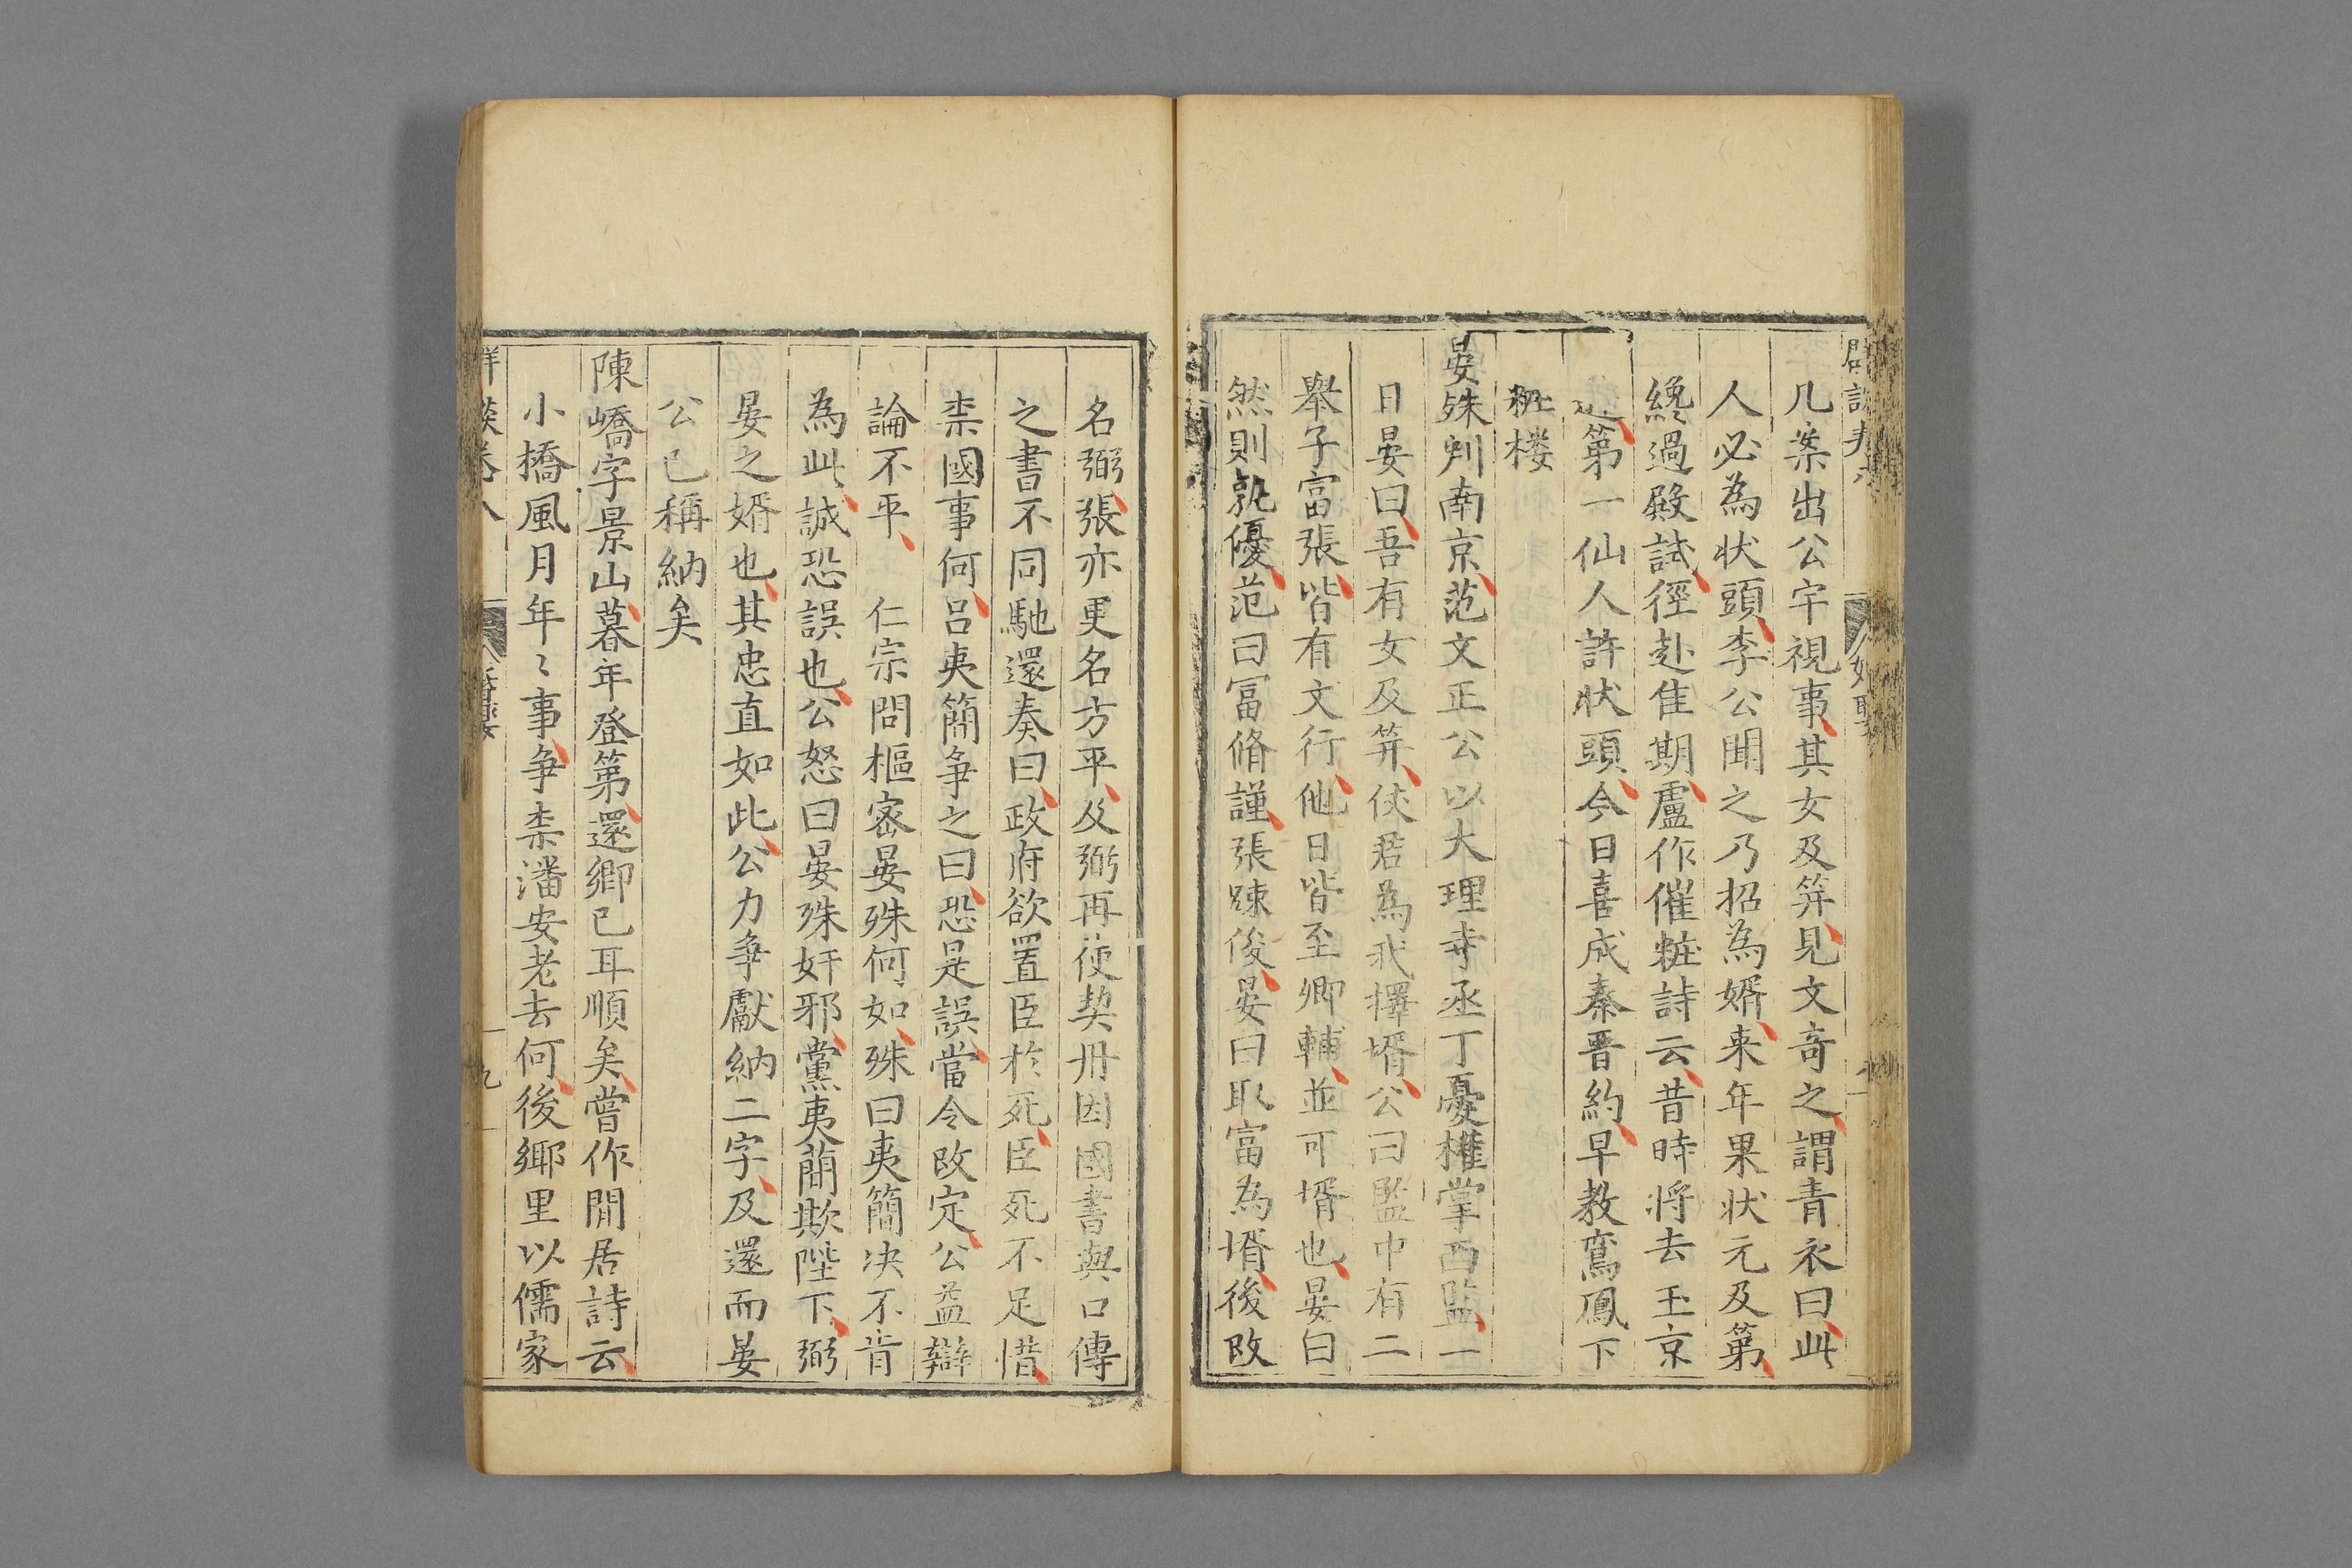 几案出公宇視事其女及笄見文奇之謂青衣曰此
人必為狀頭李公聞之乃招為婿来年果狀元及第
纔過殿試徑赴佳期盧作催粧詩云昔時将去玉京
遊第一仙人許狀頭今日喜成秦晋約早教鸞鳳下
粧楼
晏殊判南京范文正公以大理寺丞丁憂權掌西監一
日晏曰吾有女及笄伏君為我擇壻公曰監中有二
舉子富張皆有文行他日皆至卿輔並可壻也晏曰
然則孰優范曰冨脩謹張踈俊晏曰取富為壻後改
名弼張亦更名方平及弼再使契丹因國書與口傳
之書不同馳還奏曰政府欲置臣於死臣死不足惜
柰國事何吕夷簡争之曰恐是誤當令改定公益辯
論不平 仁宗問樞密晏殊何如殊曰夷簡决不肯
為此誠恐誤也公怒曰晏殊奸邪黨夷簡欺陛下弼
晏之婿也其忠直如此公力争獻納二字及還而晏
公已稱納矣
陳嶠字景山暮年登第還鄉已耳順矣嘗作閒居詩云
小橋風月年〻事争柰潘安老去何後鄉里以儒家
九